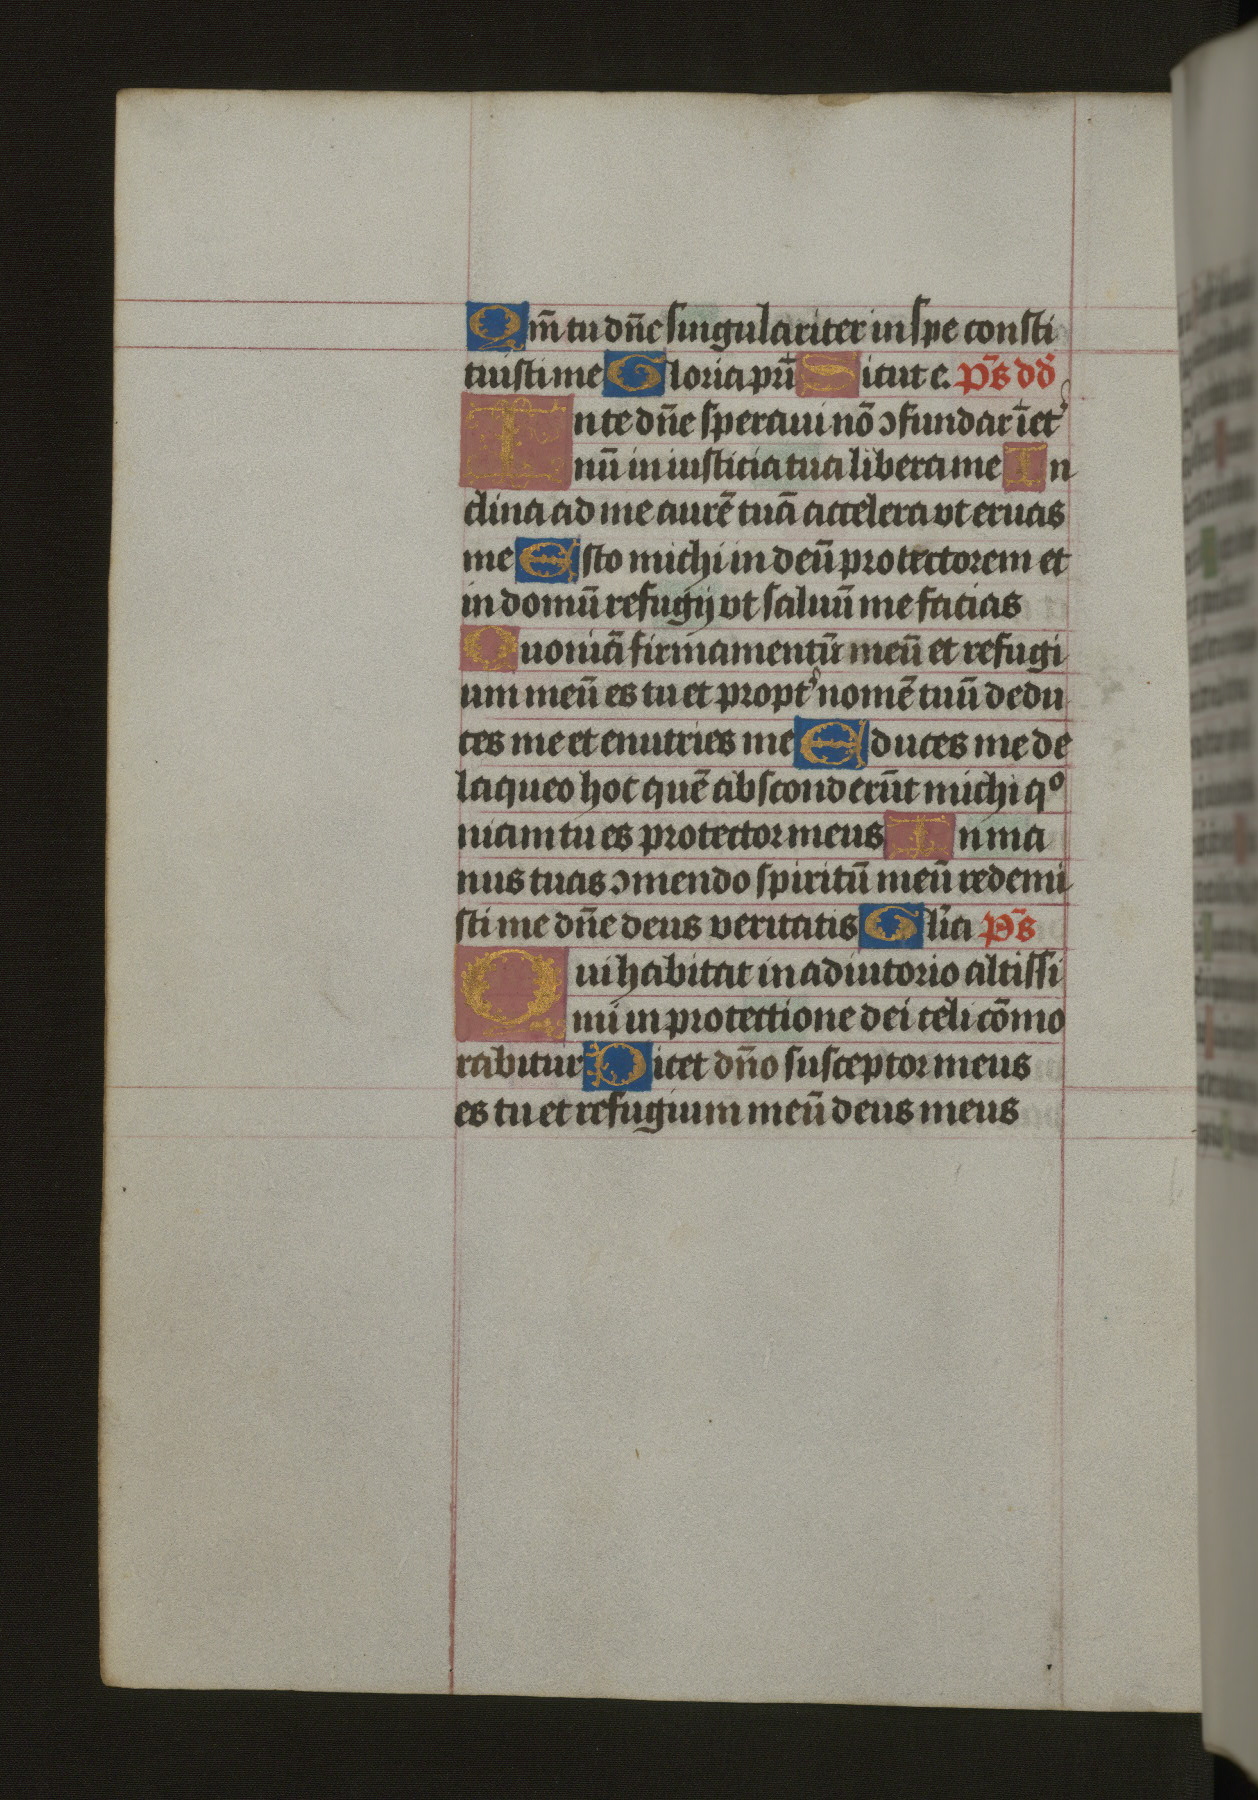 Qm̄ tu dn̄e singulariter in spe consti
tuisti me Gloria pr̄i Sicut e. ps̄ dd
In te dn̄e speraui nō ɔfundar ī et᾽
nū in iusticia tua libera me In
clina ad me aurē tuā accelera vt eruas
me Esto michi in deū protectorem et
in domū refugij vt saluū me facias
Quoniā firmamentū meū et refugi
um meū es tu et propt᾽ nomē tuū dedu
ces me et enutries me Educes me de
laqueo hoc quē absconderūt michi qº
niam tu es protector meus In ma
nus tuas ɔmendo spiritū meū redemi
sti me dn̄e deus veritatis Gl̄ia ps̄
Qui habitat in adiutorio altissi
mi in protectione dei celi cōmo
rabitur Dicet dn̄o susceptor meus
es tu et refugium meū deus meus